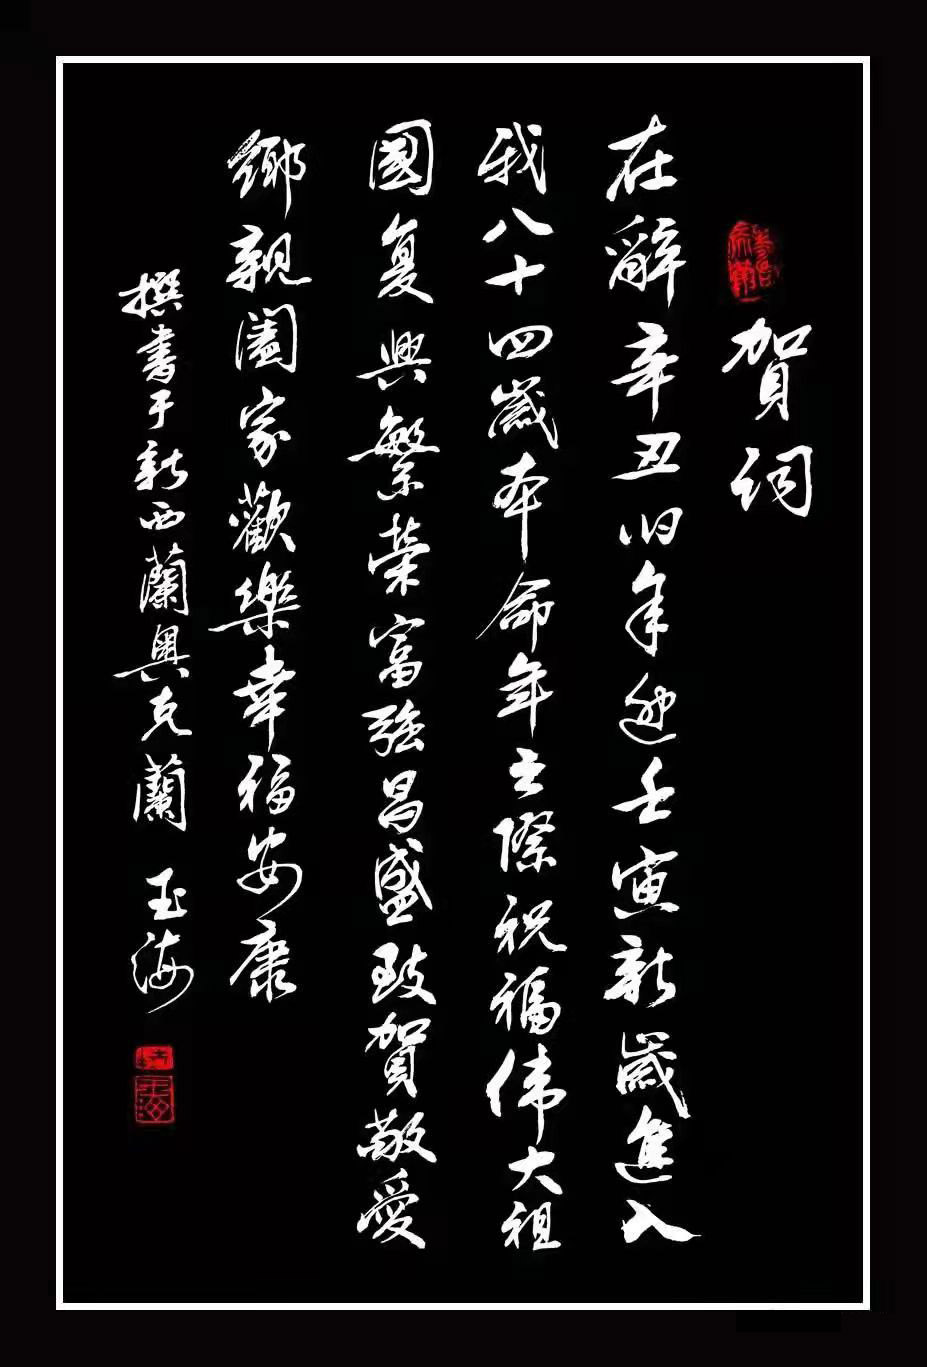 賀词
在辭辛丑旧年迎壬寅新歲進入
我八十四歲本命年之際祝福伟大祖
國复興繁榮富強昌盛致賀敬愛
鄉親闔家歡樂幸福安康
撰書于新西蘭奥克蘭 玉海